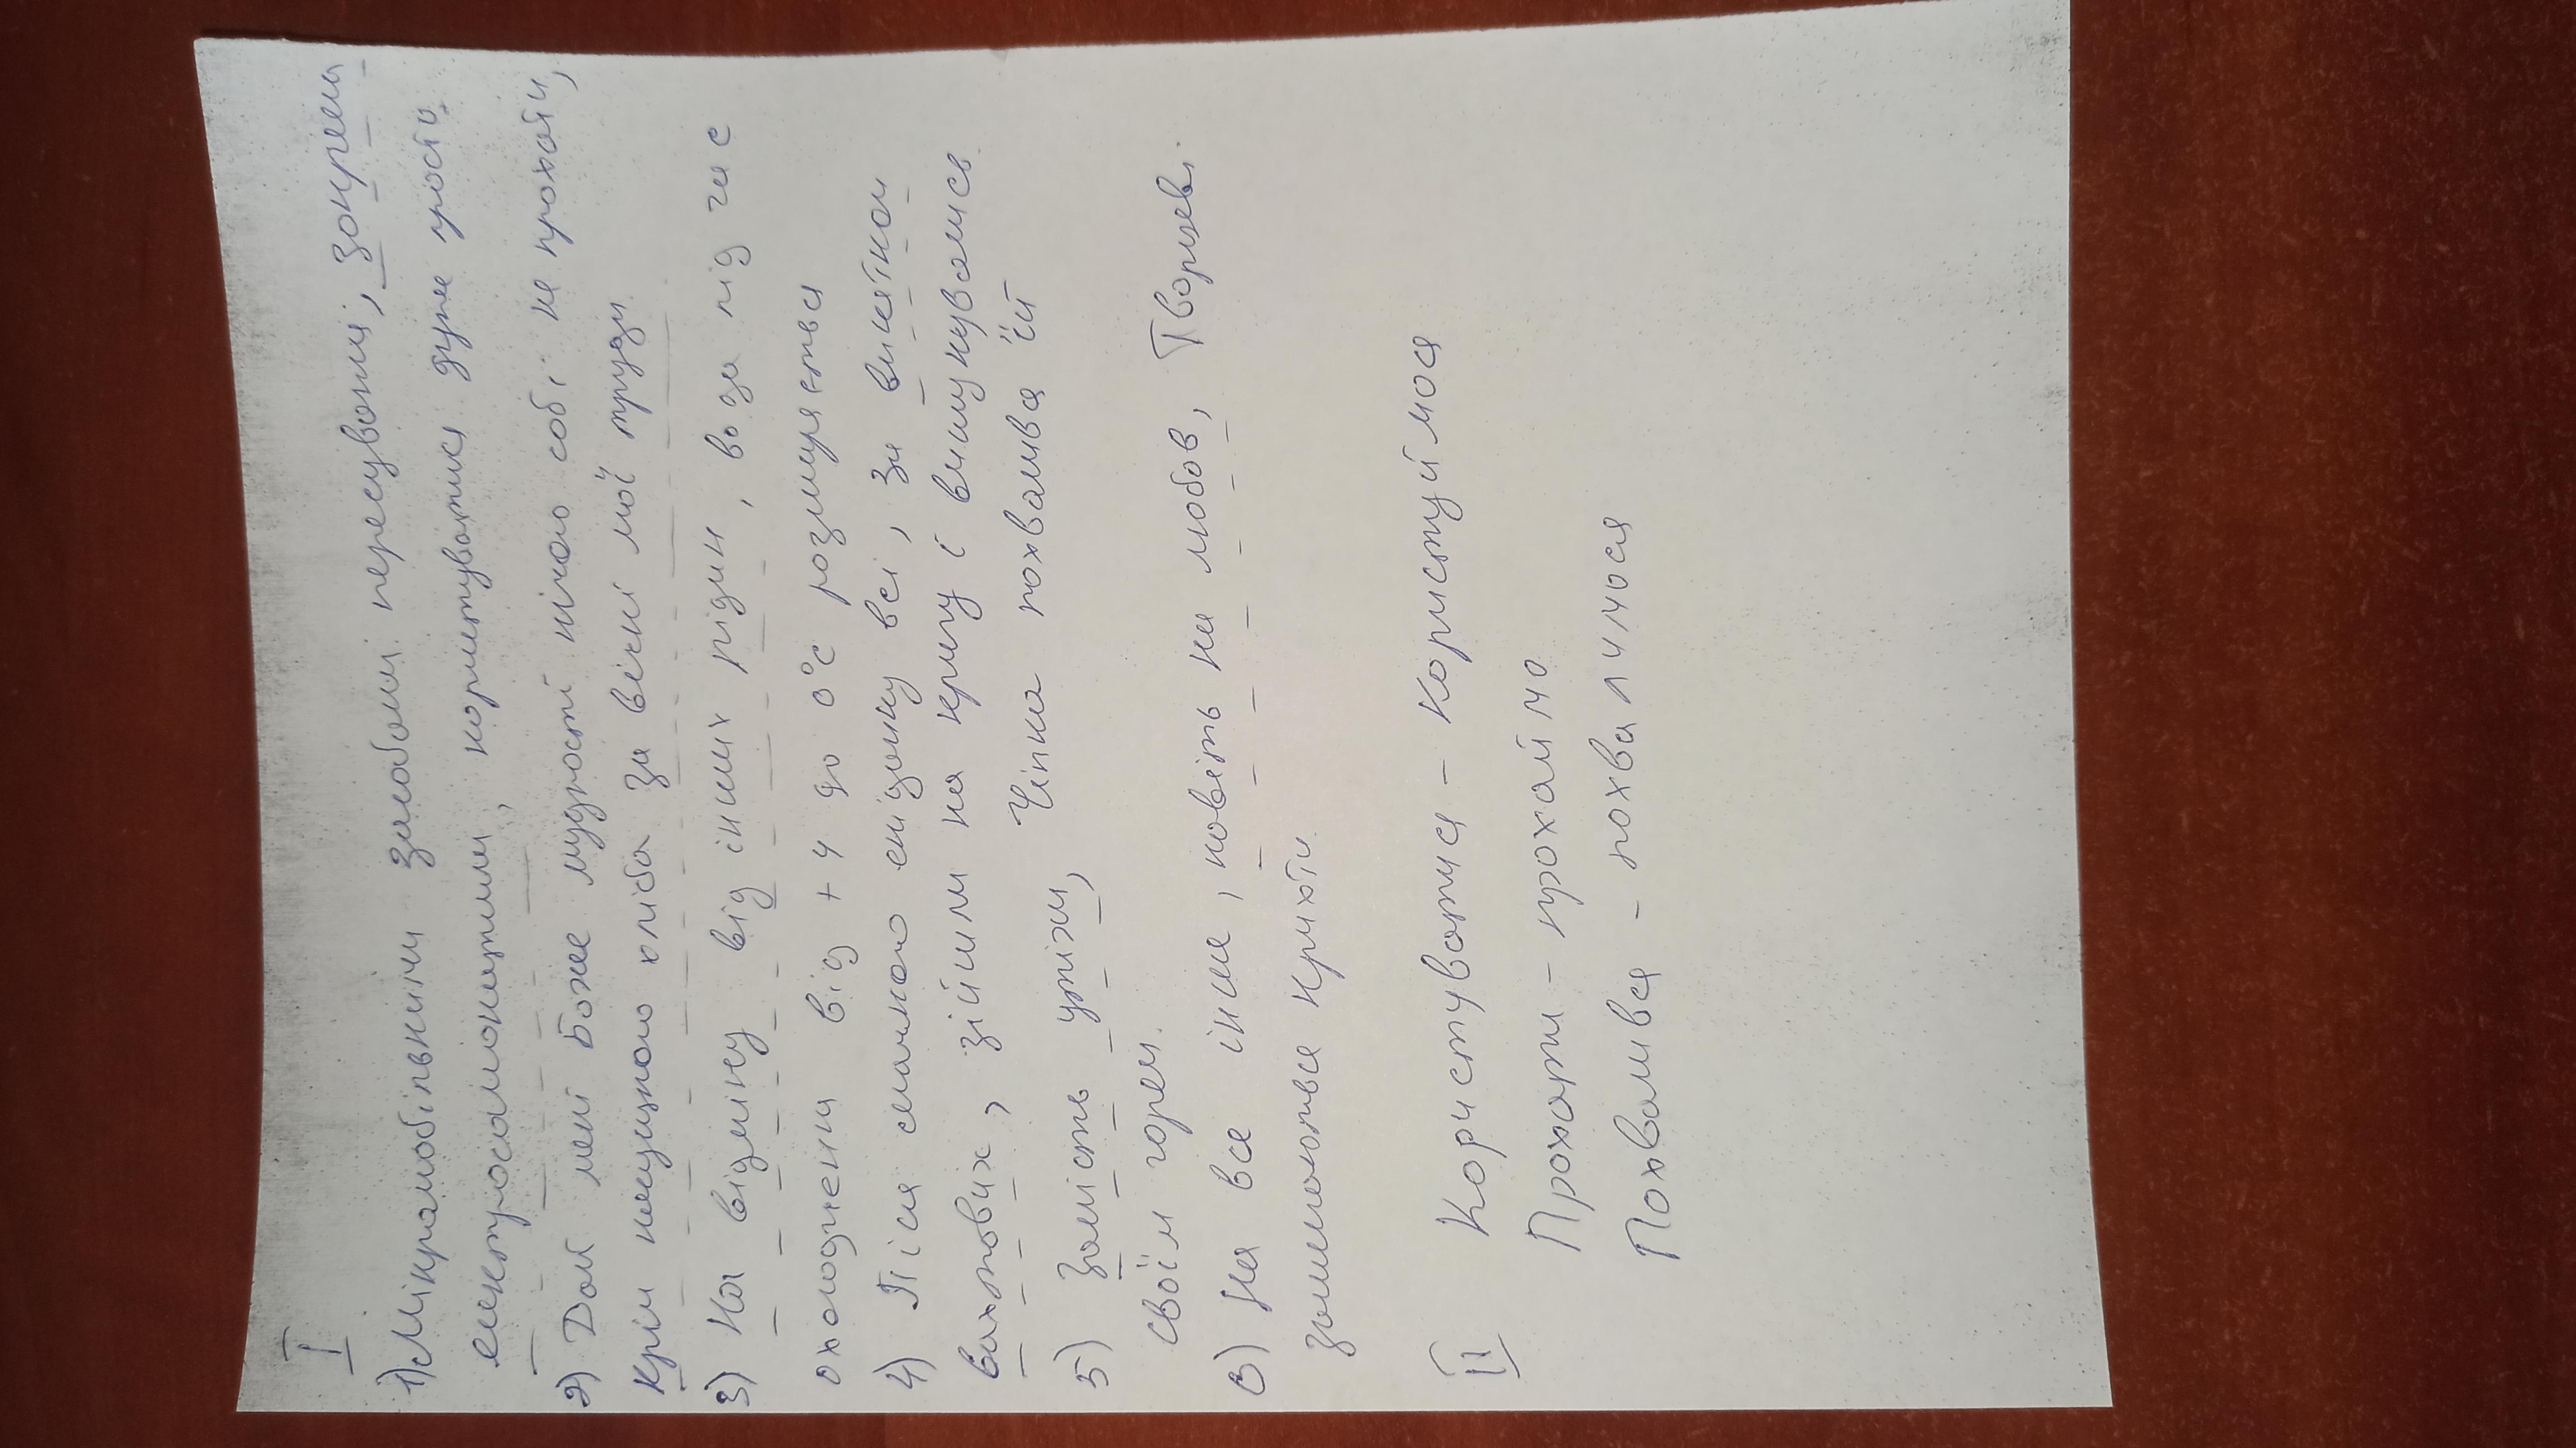 I
1) Мікромобільними засобами пересування, зокрема
електросамокатами, користуватися дуже просто.
2) Дай мені Боже мудрості нічого собі не прохати,
крім насущного хліба за вічні мої труди.
3) На відміну від інших рідин, вода під час
охолодження від +4 до 0°С розширяється
4) Після смачного сніданку всі, за винятком
вахтових, зійшли на кригу і вишикувались.
5) Замість утіхи, Чіпка похвалився їй
своїм горем.
6) На все інше, навіть на любов, Творцеві
залишаються крихти.
II Користуватися – користуймося
Прохати – прохаймо
Похвалився – похвалимося